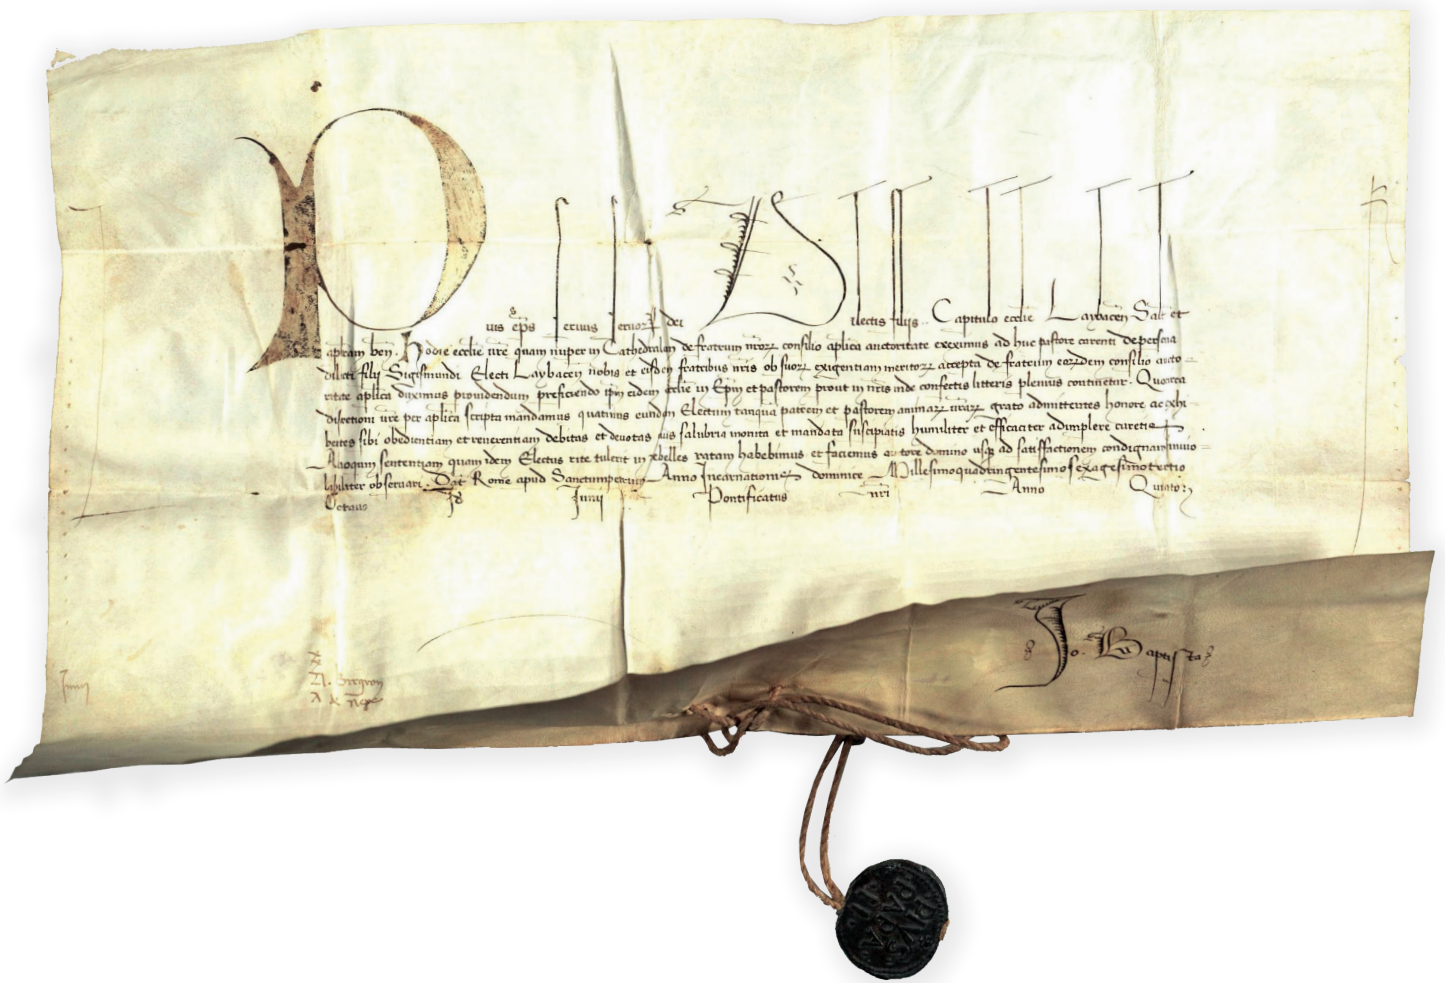 Pius eps servus servorꝝ dei Dilectis filijs Capitulo ecclie Laybaceñ Salt et
aplicam ben. Hodie ecclie vre quam nuper in Cathedralem de fratrum nrorꝝ consilio aplica auctoritate ereximus ad huc pastore carenti de persona
dilecti filij Sigismundi Electi Laybaceñ nobis et eisdem fratribus nris ob suorꝝ exigentiam meritorꝝ accepta de fratrum eorꝝdem consilio aucto-
ritate aplica duximus providendum preficiendo ipm eidem ecclie in Epm et pastorem prout in nris inde confectis litteris plenius continetur. Quocirca
discretioni vre per aplica scripta mandamus quatinus eundem Electum tanqua patrem et pastorem animarꝝ vrarꝝ grato admittentes honore ac exhi
bentes sibi obedientiam et reverentiam debitas et devotas eius salubria monita et mandata suscipiatis humiliter et efficaciter adimplere curetis.
Alioquin sententiam quam idem Electus rite tulerit in rebelles ratam habebimus et faciemus auctore domino usqꝫ ad satisfactionem condignam invio-
labiliter observari. Dat Rome apud Sanctumpetrum Anno Incarnationis dominice Millesimoquadringentesimosexagesimotertio
Octavo Id Junij Pontificatus nri Anno Quinto
Jo. Baptista
Junij
A. Bregeon